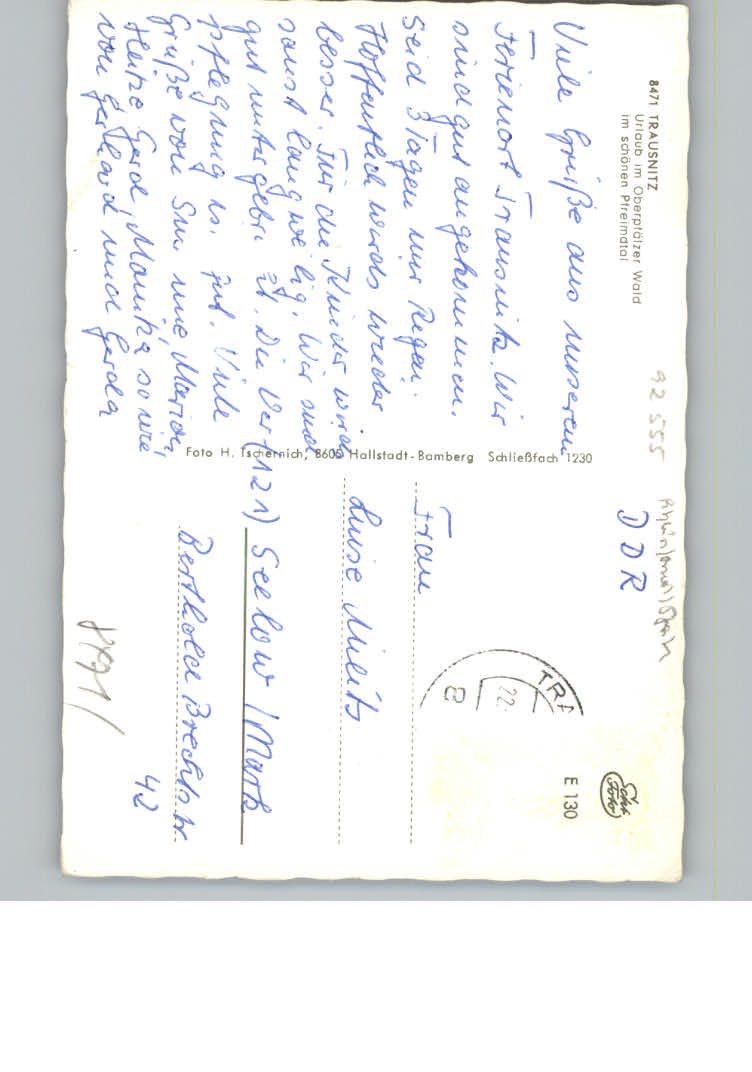 8471 TRAUSNITZ
Urlaub im Oberpfälzer Wald
im schönen Pfreimdtal
Viele Grüße aus unserem
Ferienort Trausnitz. Wir
sind gut angekommen.
Seid 3 Tagen nur Regen.
Hoffentlich wirds wieder
besser. Für die Kinder wirds
sonst langweilig. Wir sind
gut untergebr. Die Ver-
pflegung is. gut. Viele
Grüße von
Heize Gerd, Monika sowie
von Gerhard und Gerda
Foto H. Tschernich, 8605 Hallstadt-Bamberg Schließfach 1230
92 555
DDR
Frau
Luise
(121) Seelow / Mark
Berthold Brechtstr
42
TRA
22.
E 130